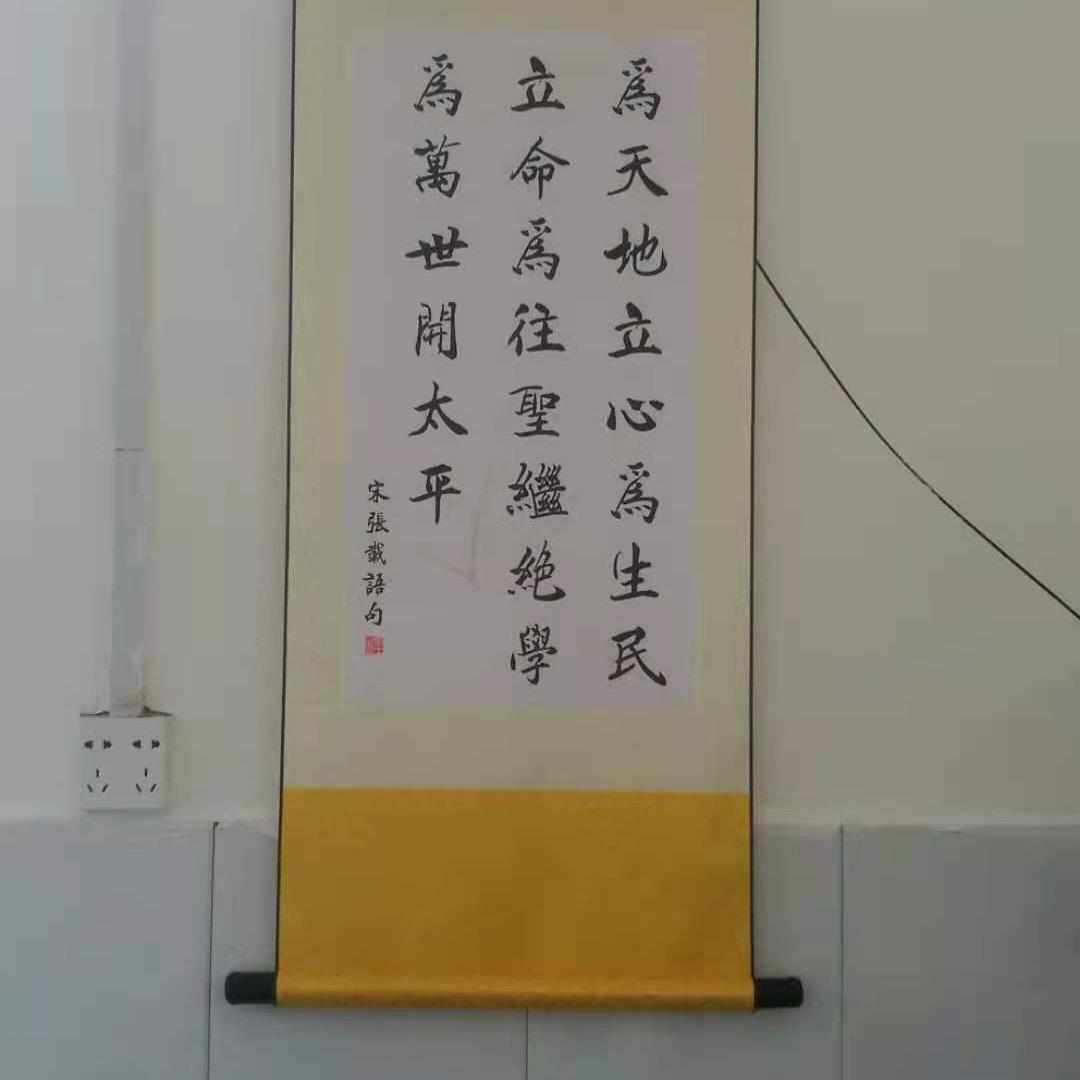 爲天地立心爲生民
立命爲往聖繼絶學
爲萬世開太平
宋張載語句